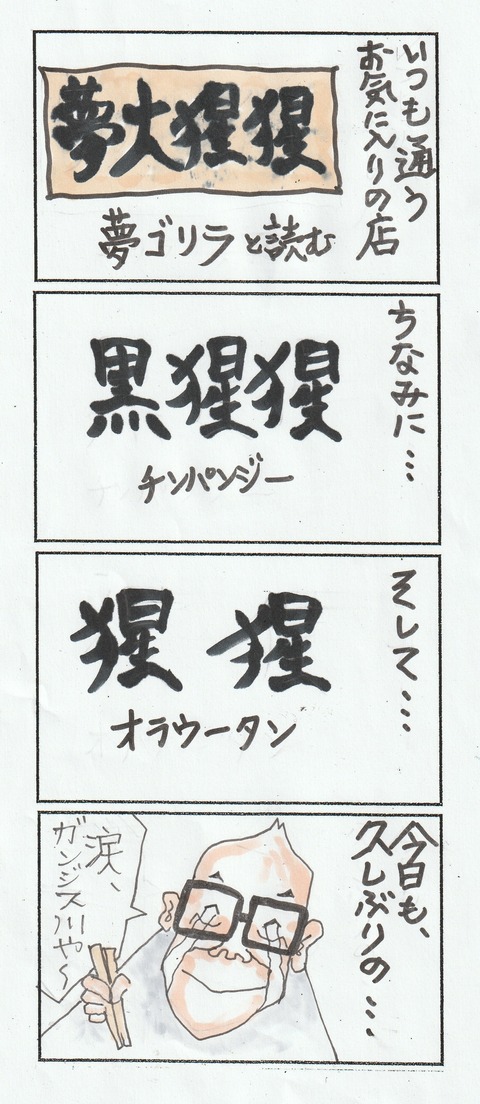 いつも通う
お気に入りの店
夢大猩猩
夢ゴリラと読む
ちなみに…
黒猩猩
チンパンジー
そして…
猩猩
オラウータン
今日も、
久しぶりの…
涙、
ガンジス川や～